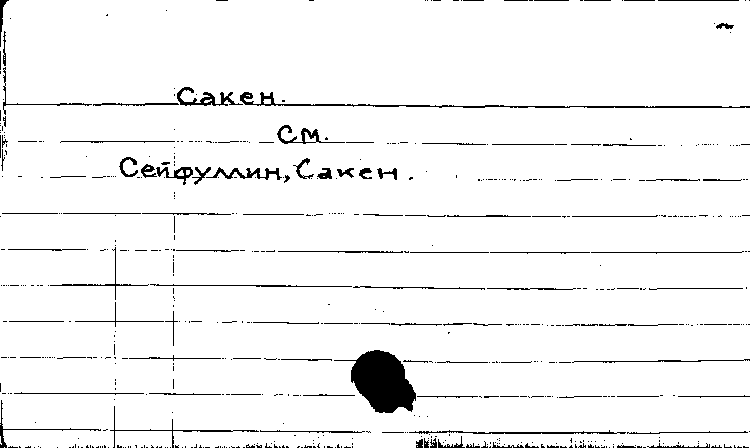 Сакен.
См.
Сейфуллин, Сакен.